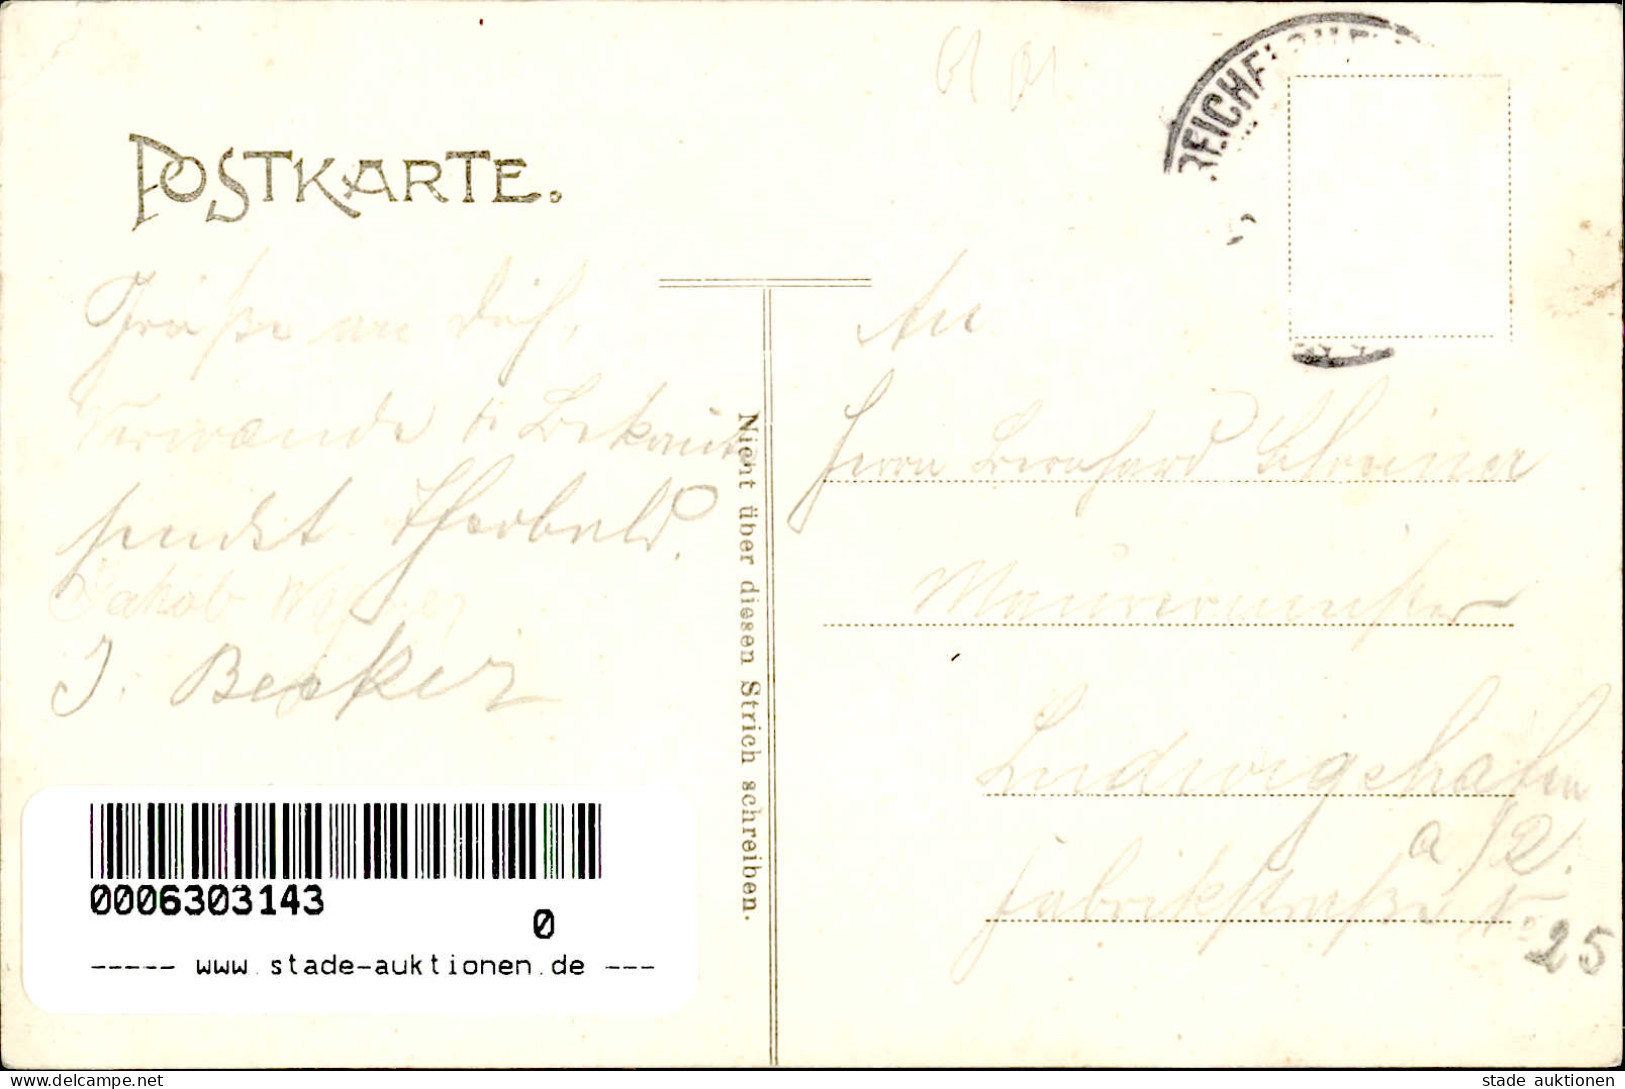 POSTKARTE.
REICHELSHEI
Grüße an dich,
Verwande u. Bekannte
sendet
Jakob Wagner
J. Becker
Nicht über diesen Strich schreiben.
An
Herrn Bernhard Schreiner
Maurermeister
Ludwigshafen
a/R.
Fabrikstraße No
25
0006303143
0
----- www.stade-auktionen.de ---
www.delcampe.net
stade auktionen